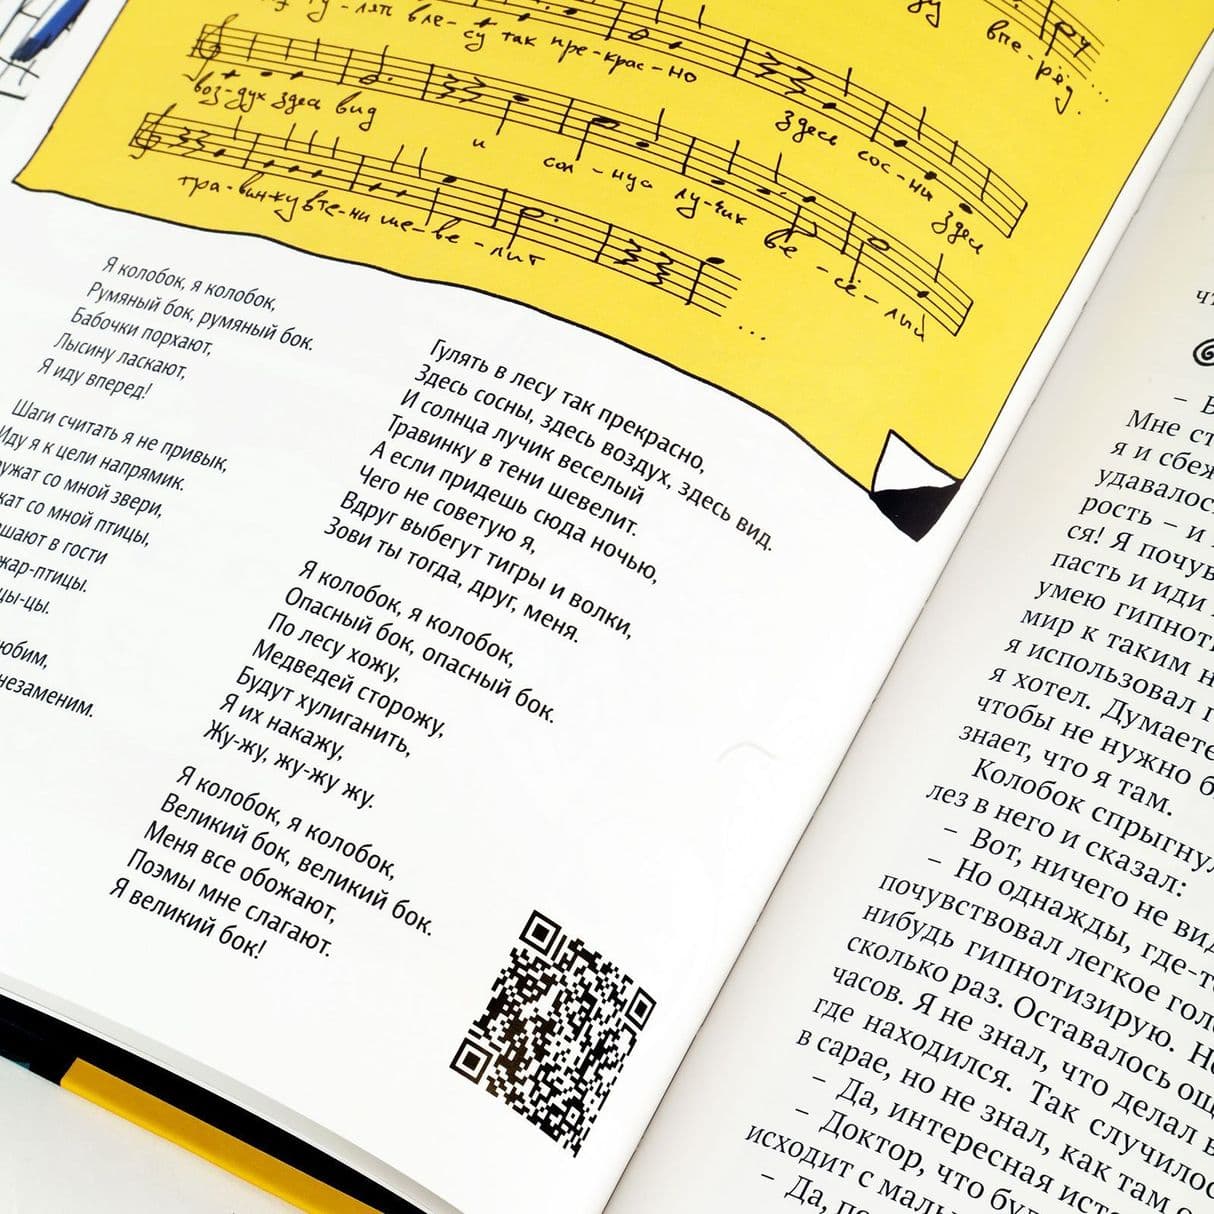 гу - лять в ле - су так пре - крас - но
здесь сос - ны здесь
впе - рёд...
воз - дух здесь вид
и сол - нца лу - чик ве - сё - лый
тра - вин - ку в те - ни ше - ве - лит
...
Я колобок, я колобок,
Румяный бок, румяный бок.
Бабочки порхают,
Лысину ласкают,
Я иду вперед!
Шаги считать я не привык,
Иду я к цели напрямик.
со мной звери,
со мной птицы,
в гости
жар-птицы.
незаменим.
Гулять в лесу так прекрасно,
Здесь сосны, здесь воздух, здесь вид.
И солнца лучик веселый
Травинку в тени шевелит.
А если придешь сюда ночью,
Чего не советую я,
Вдруг выбегут тигры и волки,
Зови ты тогда, друг, меня.
Я колобок, я колобок,
Опасный бок, опасный бок.
По лесу хожу,
Медведей сторожу,
Будут хулиганить,
Я их накажу,
Жу-жу, жу-жу жу.
Я колобок, я колобок,
Великий бок, великий бок.
Меня все обожают,
Поэмы мне слагают.
Я великий бок!
–
Мне
я и
удавалос
рость – и
ся! Я
пасть и иди
умею
мир к таким
я использовал
я хотел. Думаете
чтобы не нужно
знает, что я там.
Колобок спрыгнул
лез в него и сказал:
– Вот, ничего не
– Но однажды, где-т
почувствовал легкое
нибудь гипнотизирую.
сколько раз. Оставалось
часов. Я не знал, что делал
где находился. Так случилос
в сарае, но не знал, как там
– Да, интересная
– Доктор, что
исходит с
– Да,